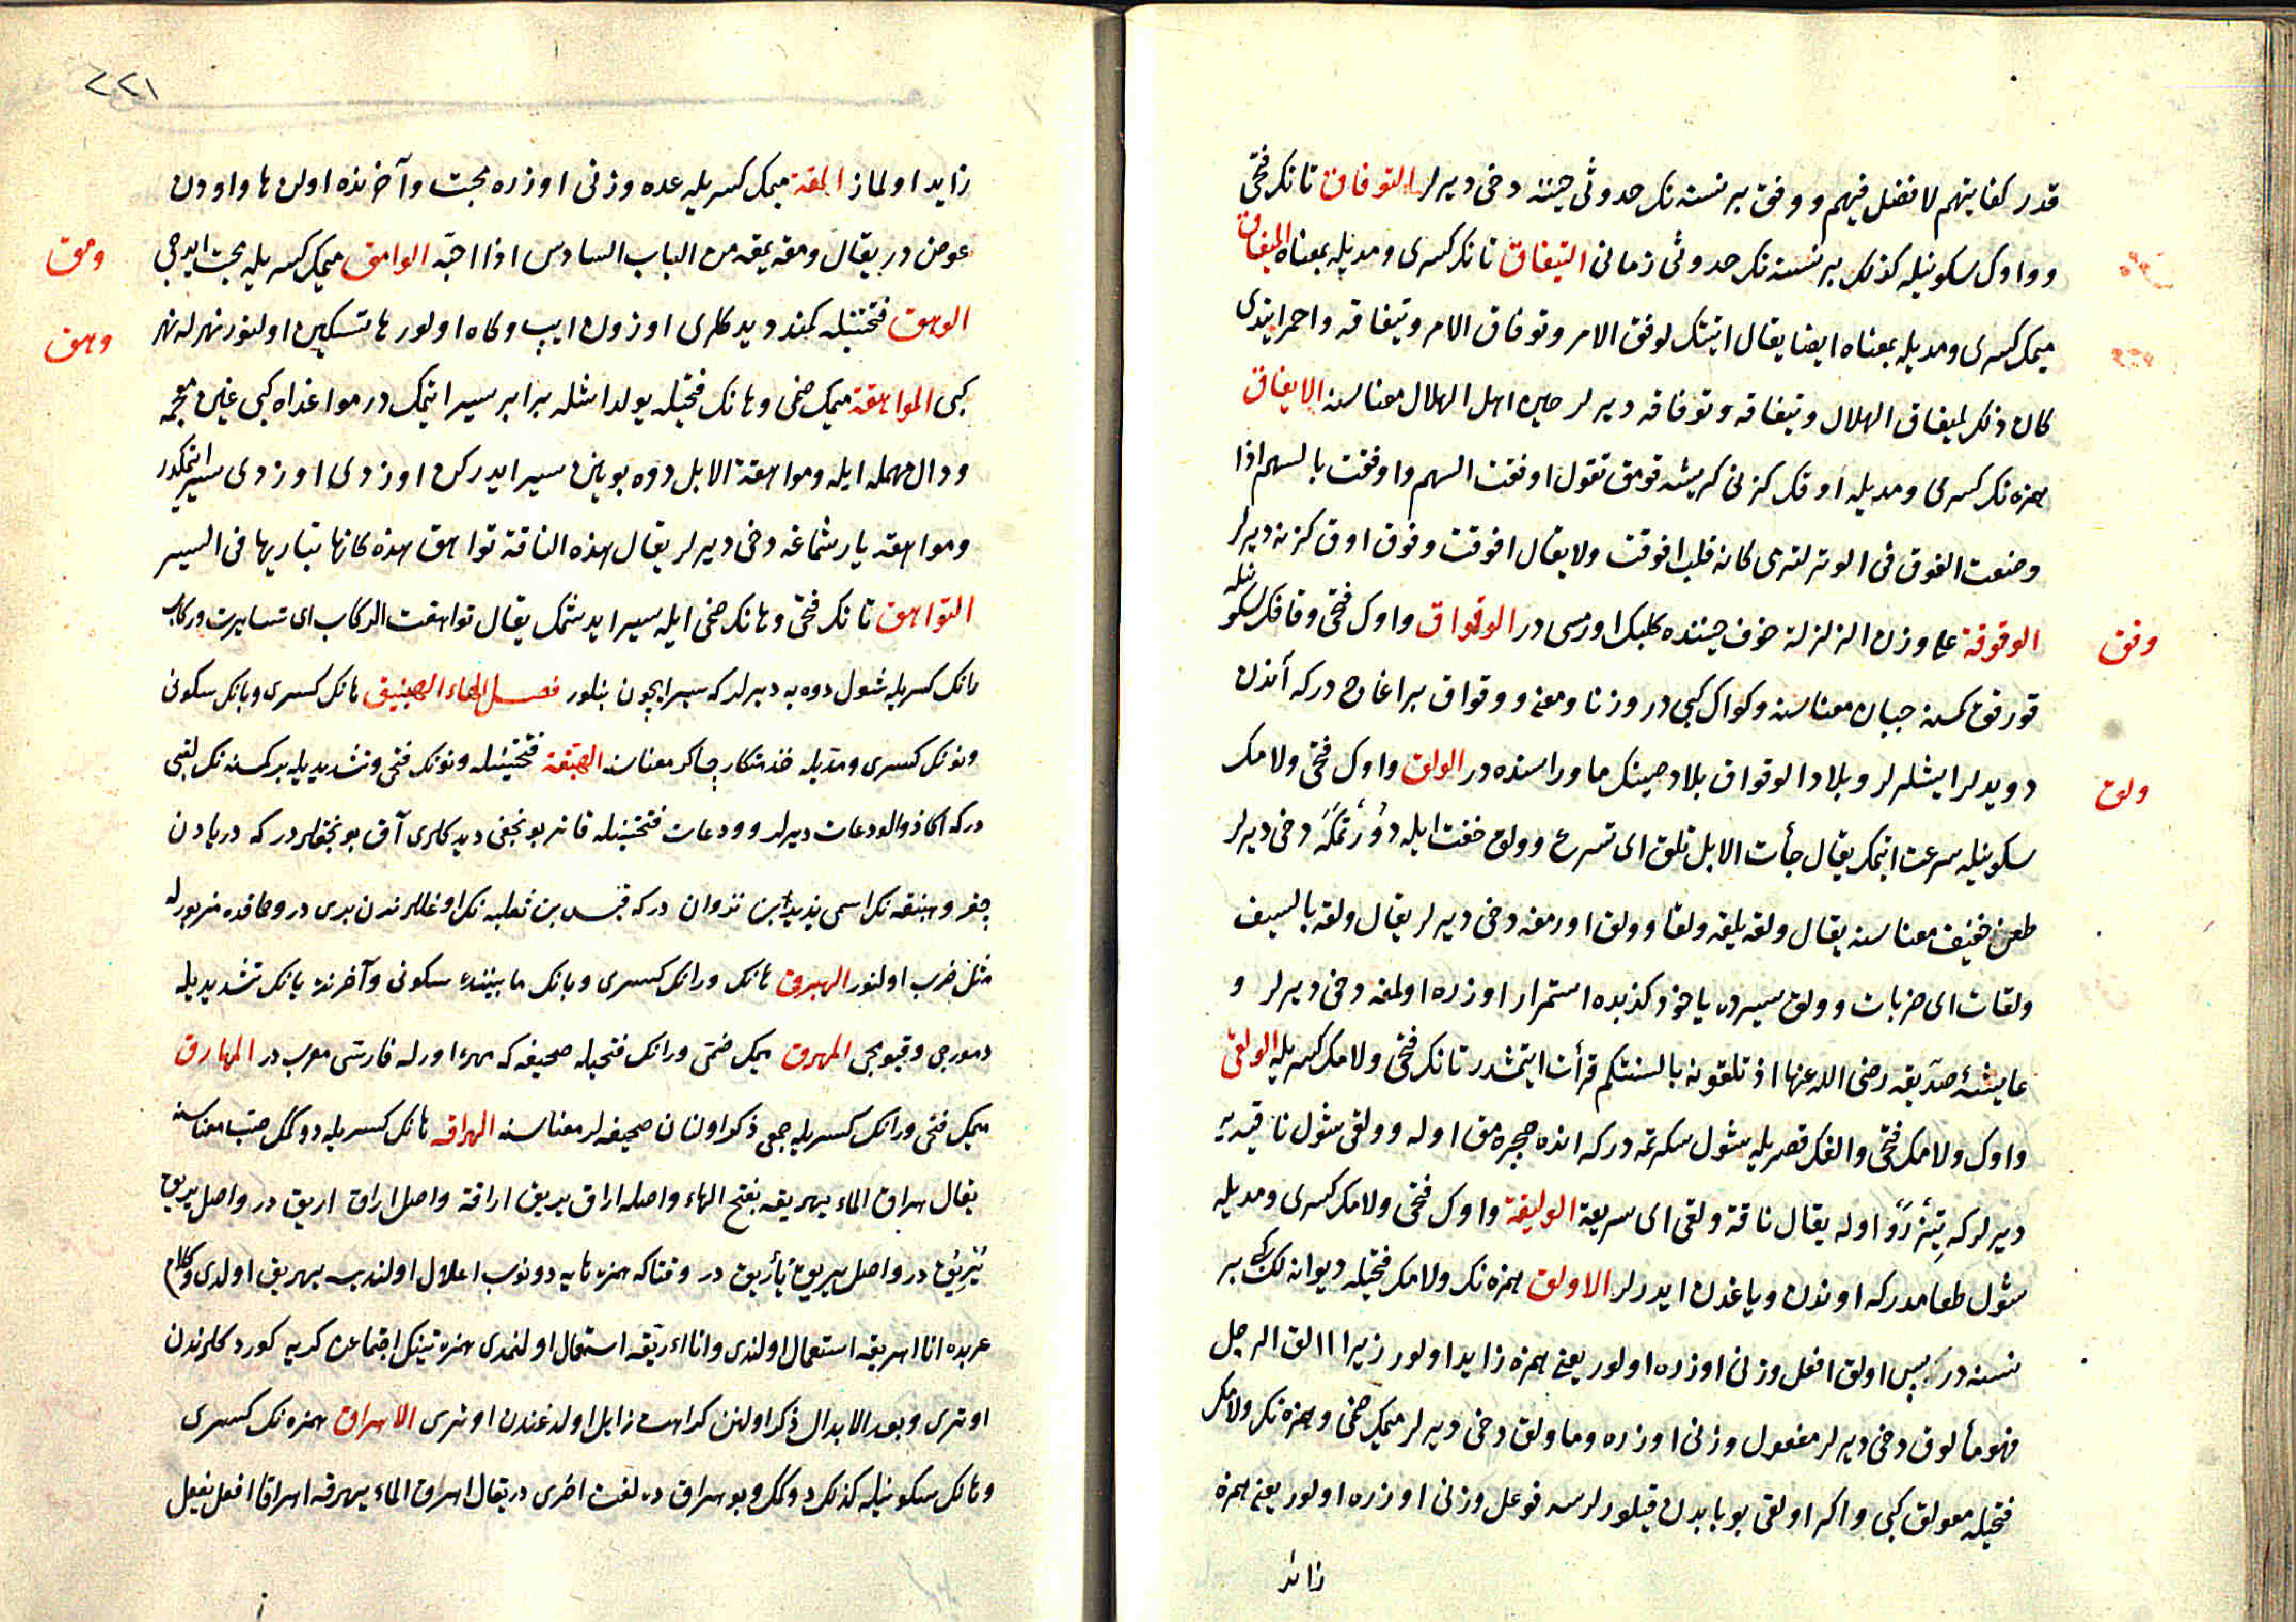 قدر كفايتهم لا فضل فيهم و وفق بر نسنه نك حدوثى حيننه دخى ديرلر التوفاق تانك فتحى
و واوك سكونيله كذلك بر نسنه نك حدوثى زمانى التيفاق تانك كسرى و مديله بمعناه الميفاق
ميمك كسرى و مديله بمعناه ايضا يقال اتيتك لوفق الامر و توفاق الامر و تيفاقه و احمر ايتدى
كان ذلك لميفاق الهلال و تيفاقه و توفاقه ديرلر حين اهل الهلال معناسنه الايفاق
همزه نك كسرى و مديله اوقك كزنى كريشه قومق تقول اوفقت السهم و اوفقت بالسهم اذا
وضعت الفوق فى الوتر لترمى كانه قلب افوقت ولا يقال افوقت و فوق اوق كزنه ديرلر
وقق
الوقوقة على وزن الزلزلة خوف حيننده كلبك اورمسى در الوقواق واوك فتحى و قافك سكونيله
قورقوق كمسنه جبان معناسنه و كواك كبى در وزنا و معنى و وقواق بر اغاج در كه آندن
ولق
دويدلر ايشلرلر و بلاد الوقواق بلاد صينك ماوراسنده در الولق واوك فتحى و لامك
سكونيله سرعت ايتمك يقال جأت الابل تلق اى تسرع و ولق خفت ايله دورتمكه دخى ديرلر
طعن خفيف معناسنه يقال ولقه يلقه ولقا و ولق اورمغه دخى ديرلر يقال ولقه بالسيف
ولقات اى ضربات و ولق سيرده ياخود كذبده استمرار اوزره اولمغه دخى ديرلر و
عايشهٔ صديقه رضى الله عنها اذ تلقونه بالسنتكم قرأت ايتمشدر تانك فتحى و لامك كسريله الولقى
واوك و لامك فتحى و الفك قصريله شول سكرتمه در كه انده صچره مق اوله و ولقى شول ناقه يه
ديرلر كه تيز رو اوله يقال ناقة ولقى اى سريعة الوليقة واوك فتحى و لامك كسرى و مديله
شول طعامدر كه اوندن و ياغدن ايدرلر الاولق همزه نك و لامك فتحيله ديوانه لك كبى بر
نسنه در پس اولق افعل وزنى اوزره اولور يعنى همزه زايد اولور زيرا الق الرجل
فهو مألوق دخى ديرلر مفعول وزنى اوزره و ماولق دخى ديرلر ميمك ضمى و همزه نك و لامك
فتحيله معولق كبى و اكر اولقى بو بابدن قيلورلرسه فوعل وزنى اوزره اولور يعنى همزه
زائد
٢٢١
زايد اولماز المقة ميمك كسريله عده وزنى اوزره محبت و آخرنده اولن ها واودن
ومق
عوض در يقال ومقه يمقه من الباب السادس اذا احبّه الوامق ميمك كسريله محبت ايديجى
وهق
الوهق فتحتينله كمند ديدكلرى اوزون ايپ و كاه اولور ها تسكين اولنور نهر له نهر
كبى المواهقة ميمك ضمى و هانك فتحيله يولداشله برابر سير ايتمك در مواغداه كبى غين معجمه
و دال مهمله ايله و مواهقة الابل دوه بوينن سير ايدركن اوزدى اوزدى سير ايتمكدر
و مواهقه ياريشماغه دخى ديرلر يقال هذه الناقة تواهق هذه كانها تباريها فى السير
التواهق تانك فتحى و هانك ضمى ايله سير ايدشمك يقال تواهقت الركاب اى تسايرت و ركاب
رانك كسريله شول دوه يه ديرلر كه سير ايچون بنلور فصل الهاء الهبنيق هانك كسرى و بانك سكونى
و نونك كسرى و مديله خدمتكار چاكر معناسنه الهبنّقة فتحتينله و نونك فتحى و تشديديله بر كمسنه نك لقبى
در كه اكا ذو الودعات ديرلر و ودعات فتحتينله قاتر بونجغى ديدكلرى آق بونجقلردر كه دريادن
چقر و هبنقه نك اسمى يزيد ابن ثروان در كه قيس بن ثعلبه نك اوغللرندن بريدر و حماقده مزبورله
مثل ضرب اولنور الهبرقى هانك و رانك كسرى و بانك مابيننده سكونى و آخرنده يانك تشديديله
دمورجى و قيومجى المهرق ميمك ضمى و رانك فتحيله صحيفه كه مهره اورله فارسى معرب در المهارق
ميمك فتحى و رانك كسريله جمعى ذكر اولنان صحيفه لر معناسنه الهراقه هانك كسريله دوكمك صبّ معناسنه
يقال هراق الماء يهريقه بفتح الهاء و اصله اراق يريق اراقة و اصل اراق اريق در و اصل يريق
يُرْيِقُ در و اصل يريق يأريق در وقتاكه همزه هايه دونوب اعلال اولنديسه يهريق اولدى و كلام
عربده انا اهريقه استعمال اولندى و انا اءريقه استعمال اولنمدى همزتينك اجتماعن كريه كوردكلرندن
اوترى و بعد الابدال ذكر اولنن كراهت زايل اولدغندن اوترى الاهراق همزه نك كسرى
و هانك سكونيله كذلك دوكمك و بو هراق ده لغت اخرى در يقال اهرق الماء يهرقه اهراقا افعل يفعل